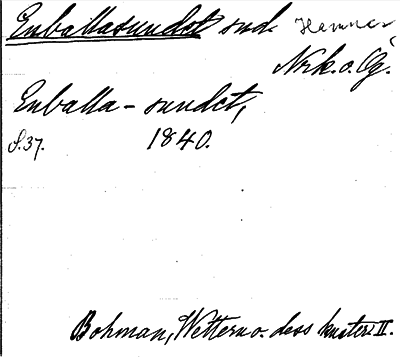 Enballasundet sund. Hammar
Nrk. o. Ög.
Enballa-sundet,
S. 37. 1840.
Bohman, Wettern o. dess kuster II.